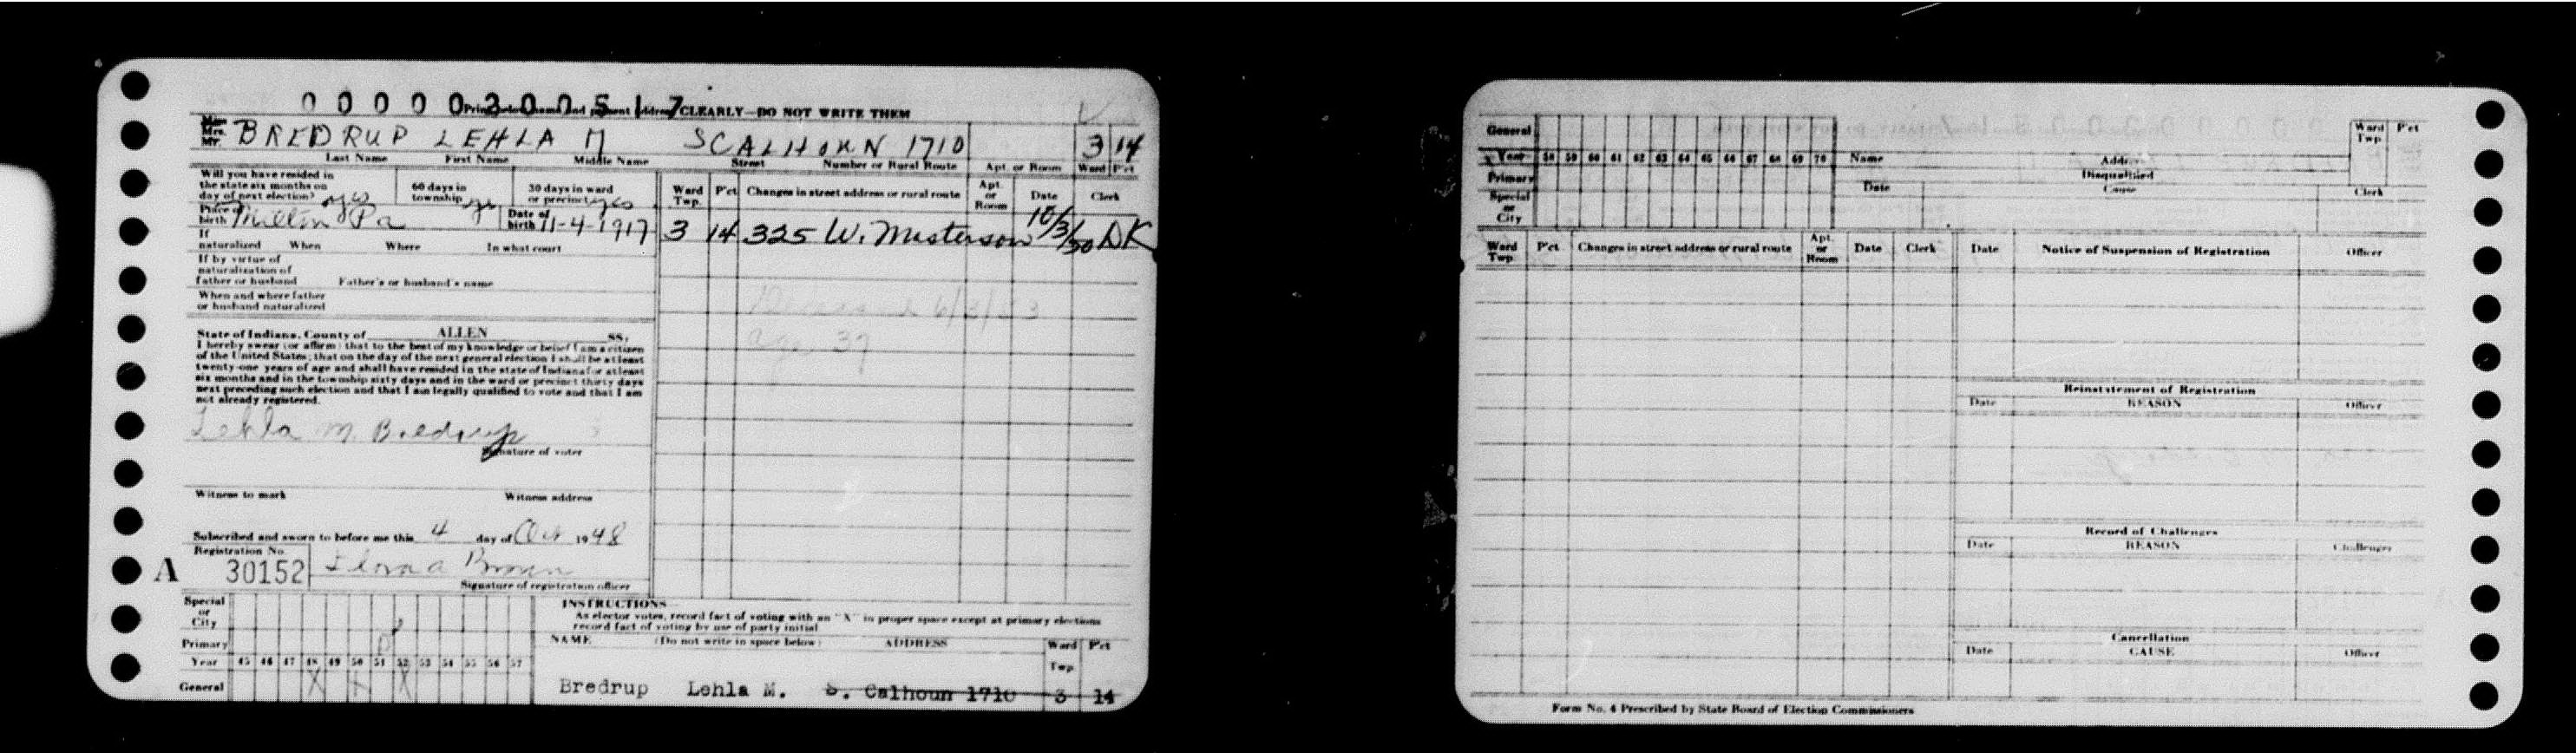 0 0 0 0 0 3 0 0 5 1 7
Print below name and present address CLEARLY—DO NOT WRITE THEM
Mrs.
Mr.
BREDRUP LEHLA M S CALHOUN 1710 3 14
Last Name First Name Middle Name Street Number or Rural Route Apt. or Room Ward P'ct
Will you have resided in the state six months on day of next election? yes
60 days in township yes
30 days in ward or precinct yes
Place of birth Milton Pa
Date of birth 11-4-1917
If naturalized When Where In what court
If by virtue of naturalization of father or husband Father's or husband's name
When and where father or husband naturalized
Ward Twp. P'ct Changes in street address or rural route Apt. or Room Date Clerk
3 14 325 W. Masterson 10/3/50 DK
age 37
State of Indiana, County of ALLEN SS.
I hereby swear (or affirm) that to the best of my knowledge or belief I am a citizen
of the United States; that on the day of the next general election I shall be at least
twenty-one years of age and shall have resided in the state of Indiana for at least
six months and in the township sixty days and in the ward or precinct thirty days
next preceding such election and that I am legally qualified to vote and that I am
not already registered.
Lehla M. Bredrup
Signature of voter
Witness to mark Witness address
Subscribed and sworn to before me this 4 day of Oct 1948
Registration No.
A 30152
Brown
Signature of registration officer
Special or City
Primary
Year 45 46 47 48 49 50 51 52 53 54 55 56 57
General X X X
INSTRUCTIONS
As elector votes, record fact of voting with an "X" in proper space except at primary elections
record fact of voting by use of party initial
NAME (Do not write in space below) ADDRESS Ward Twp. P'ct
Bredrup Lehla M. S. Calhoun 1710 3 14
General
Year 58 59 60 61 62 63 64 65 66 67 68 69 70
Primary
Special or City
Name Address Ward Twp P'ct
Disqualified
Date Cause Clerk
Ward Twp. P'ct. Changes in street address or rural route Apt. or Room Date Clerk
Date Notice of Suspension of Registration Officer
Reinstatement of Registration
Date REASON Officer
Record of Challenges
Date REASON Challenger
Cancellation
Date CAUSE Officer
Form No. 4 Prescribed by State Board of Election Commissioners